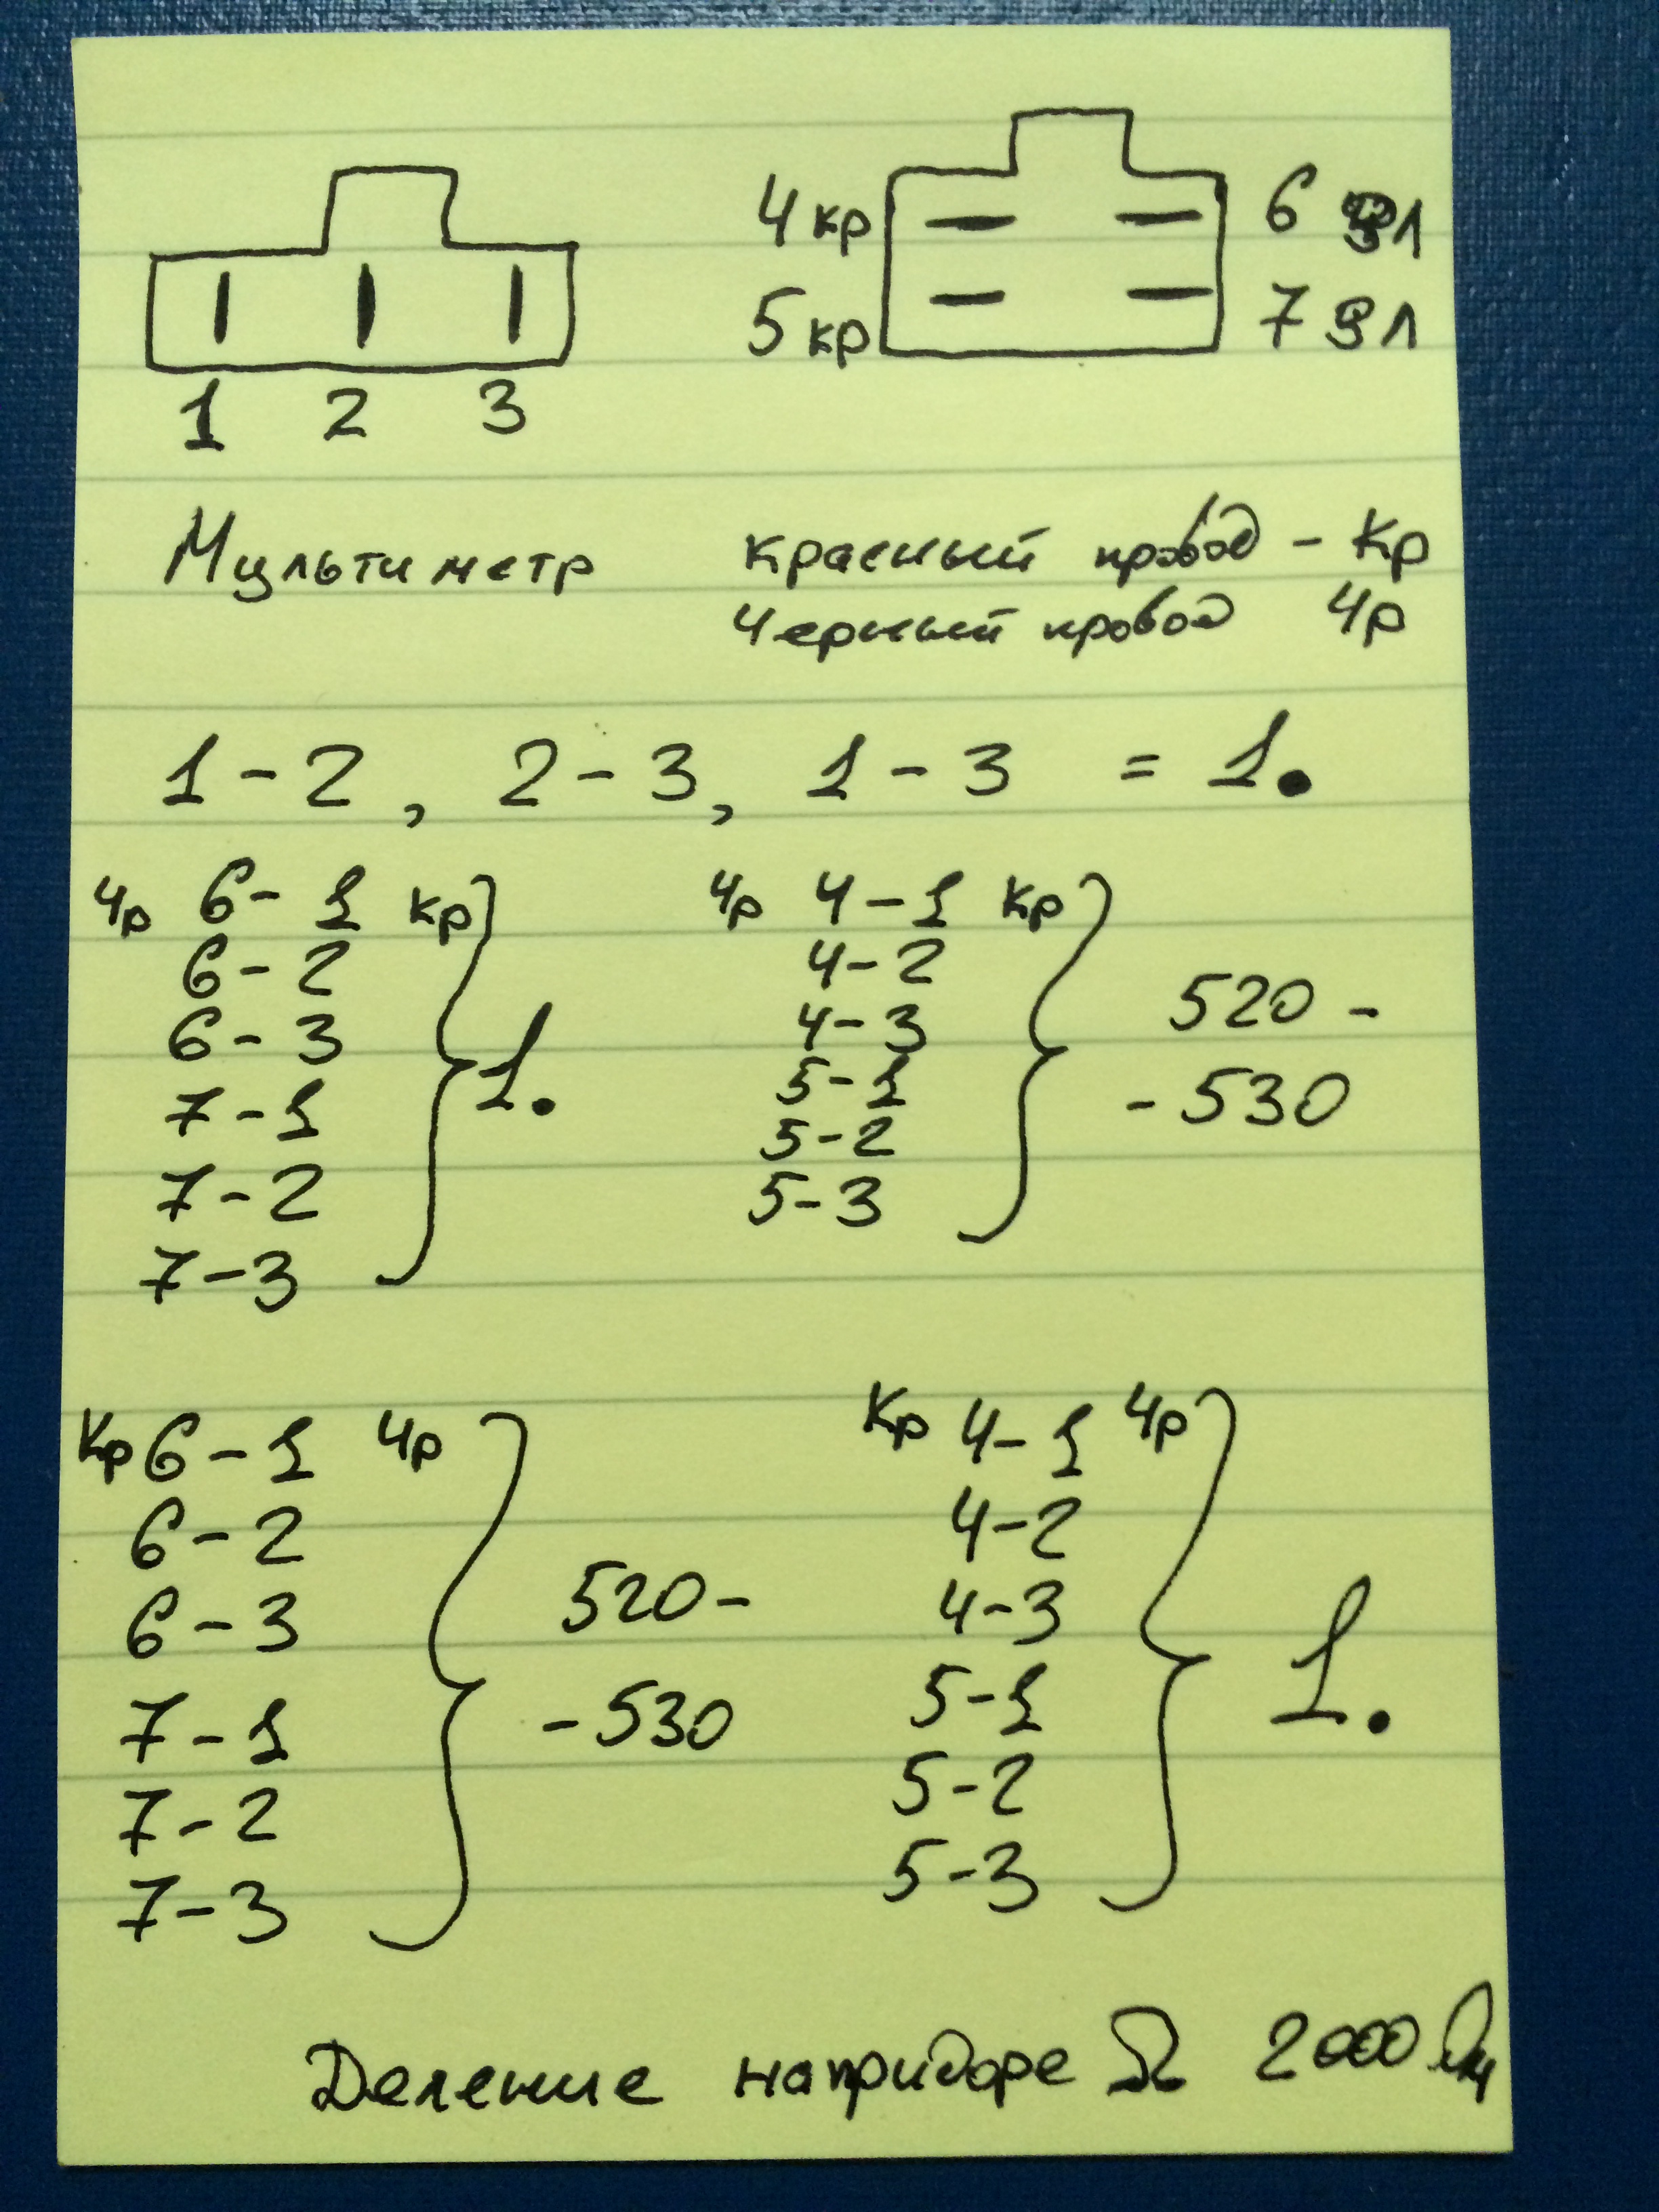 4 кр 6 зл
5 кр 7 зл
1 2 3
Мультиметр красный провод - Кр
Черный провод Чр
1-2, 2-3, 1-3 = 1.
Чр 6-1 кр
6-2
6-3
7-1
7-2
7-3
1.
Чр 4-1 кр
4-2
4-3
5-1
5-2
5-3
520 -
- 530
Кр 6-1 Чр
6-2
6-3
7-1
7-2
7-3
520 -
- 530
Кр 4-1 Чр
4-2
4-3
5-1
5-2
5-3
1.
Деление на придоре Ω 2000 Ом